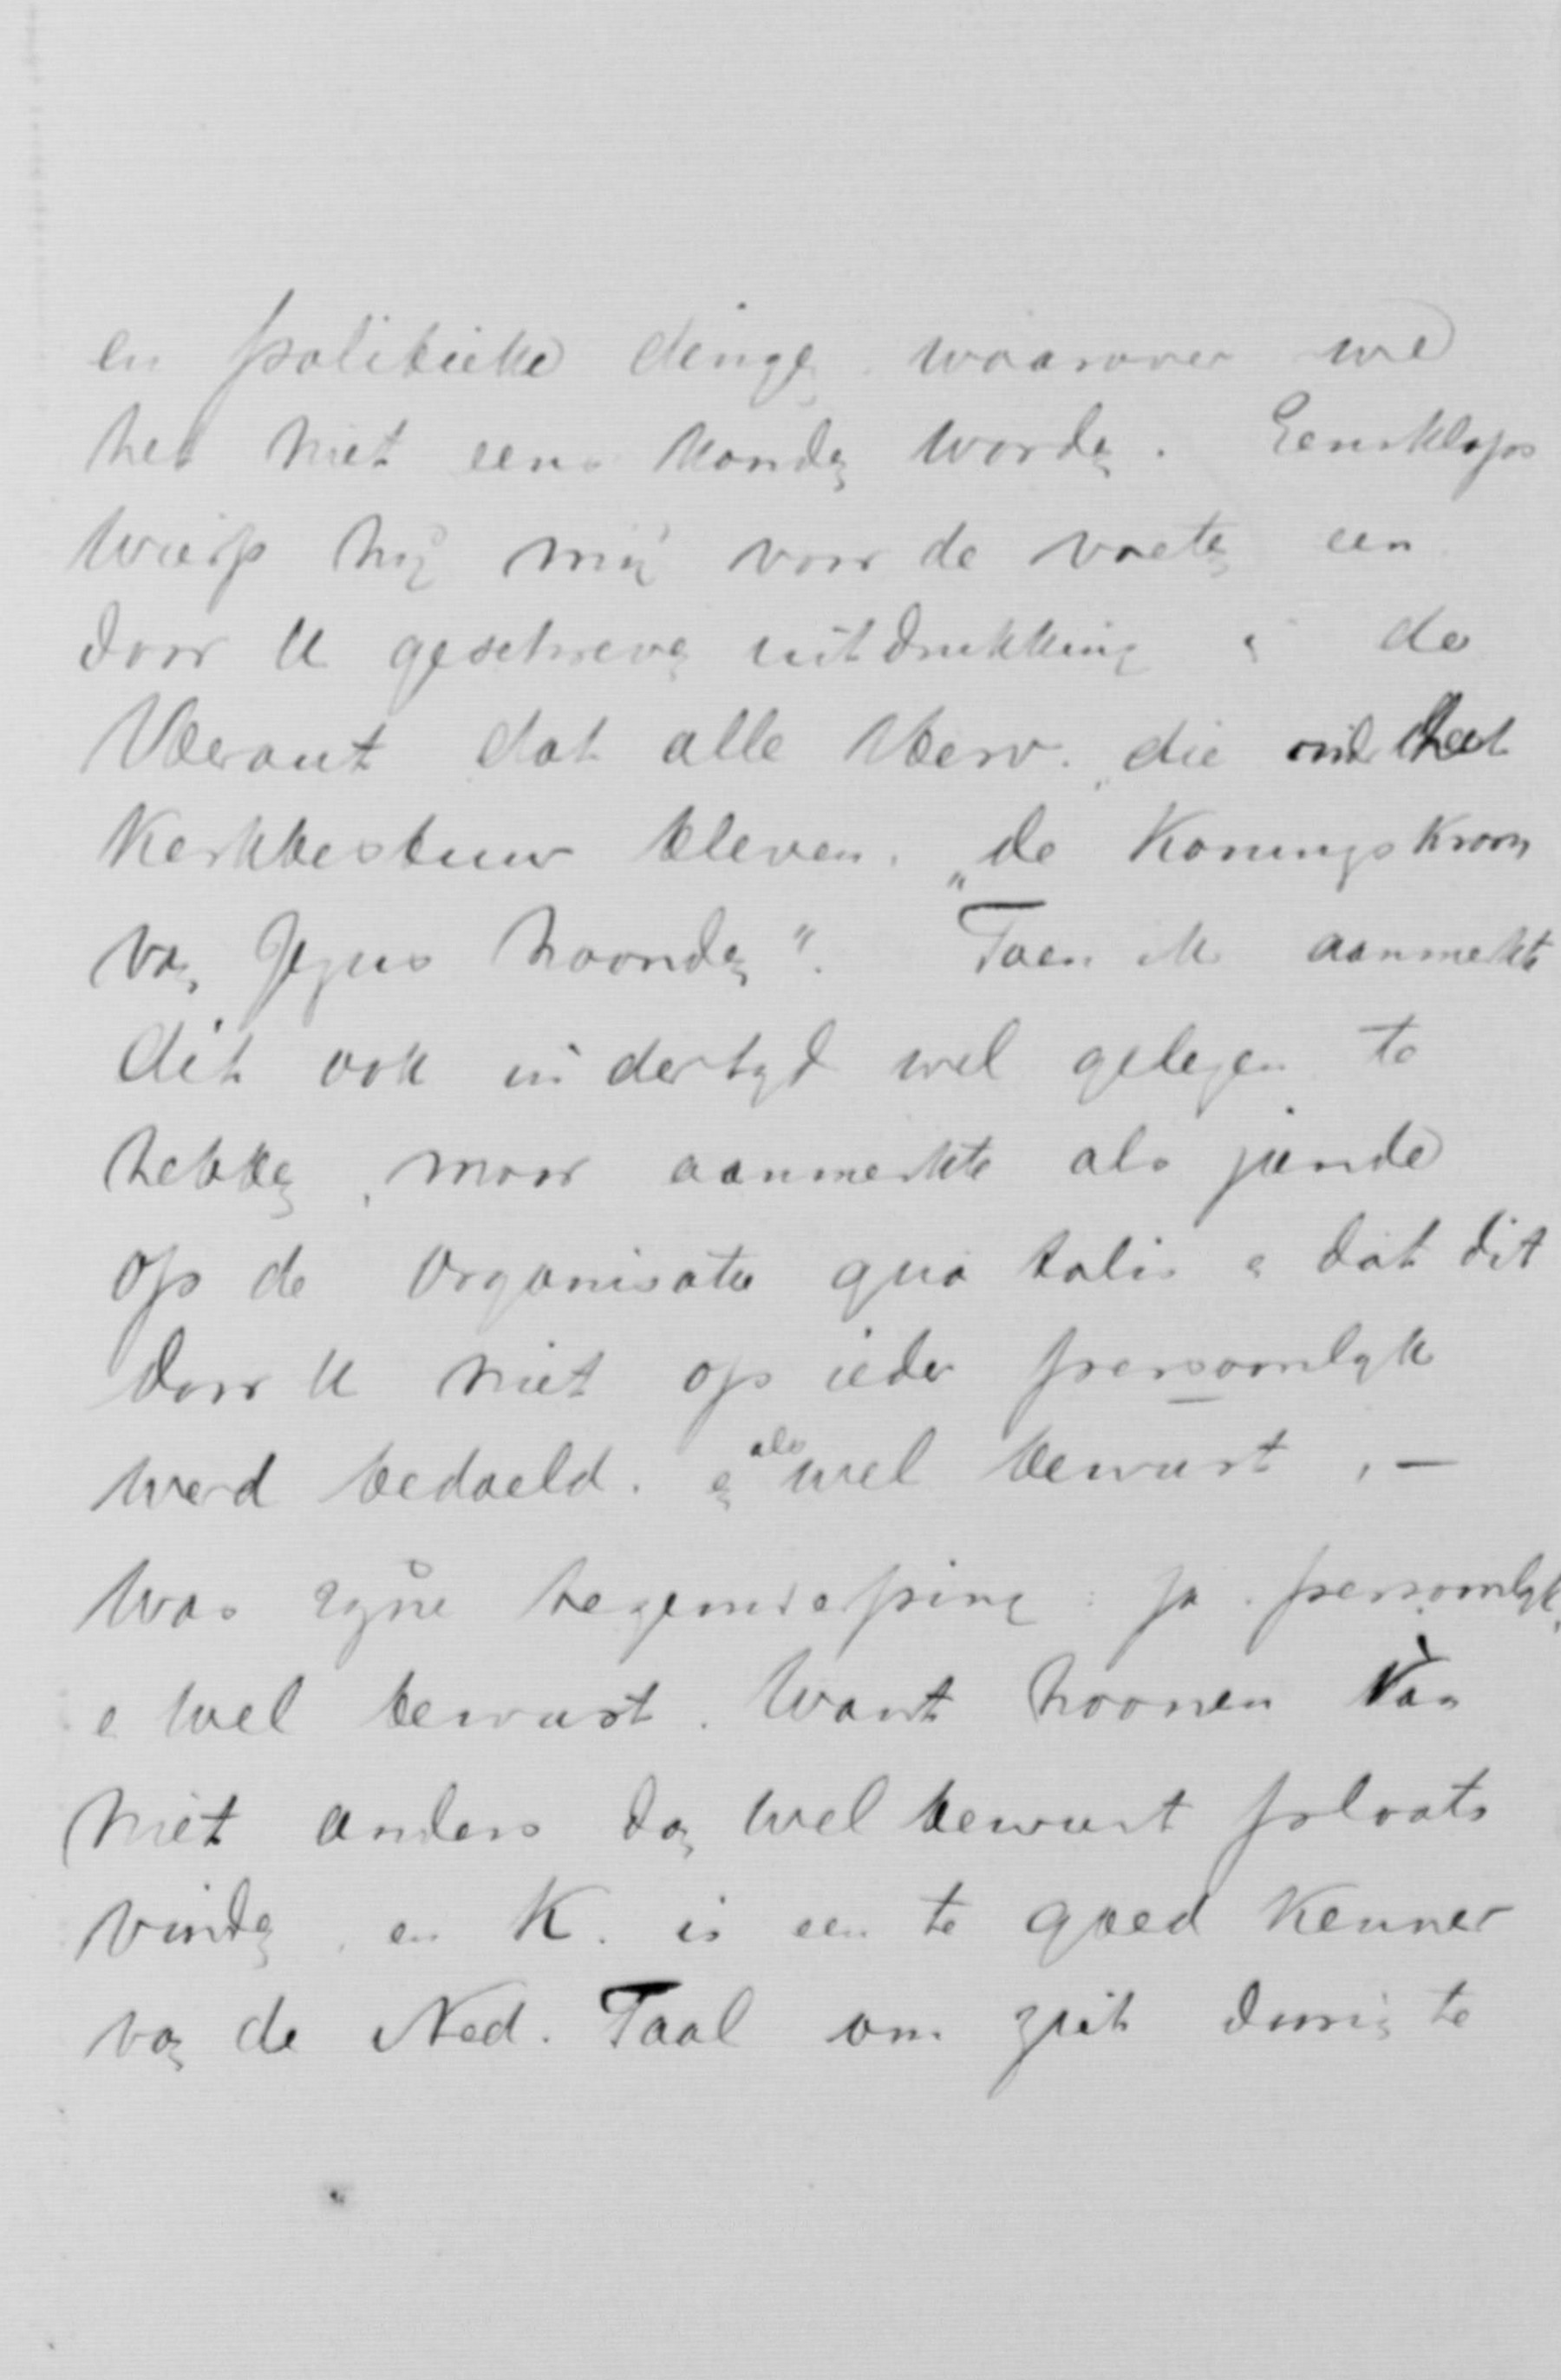 en politieke dingen waarover we
het niet eens konden worden. Eensklaps
wierp hij mij voor de voeten een
door U geschreven uitdrukking in de
Heraut dat alle Herv. die ond het
Kerkbestuur bleven. „de Koningskroon
van Jezus hoonden". Toen ik aanmerkte
dit ook indertyd wel gelezen te
hebben, maar aanmerkte als zünde
op de Organisatie qua talis e dat dit
door U niet op ieder persoonlyk
werd bedoeld. en als wel bewust, —
was zyne tegenwerping: ja persoonlyk
e wel bewust. Want hoonen kan
niet anders dan wel bewust plaats
vinden, en K. is een te goed Kenner
van de Ned. Taal om zich daarin te